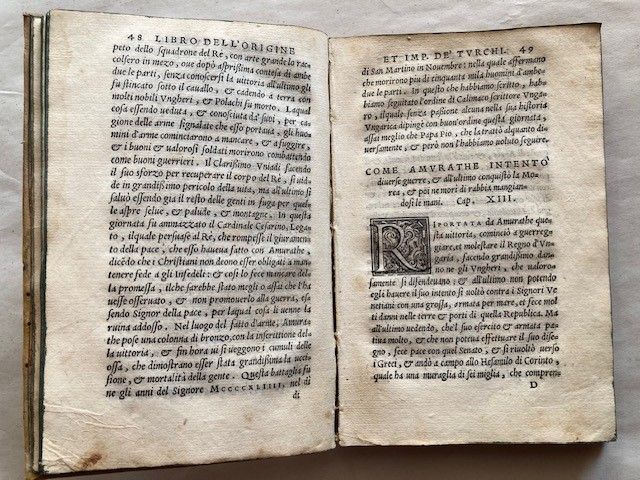 48 LIBRO DELL'ORIGINE
peto dello squadrone del Rè, con arte grande lo rac-
colsero in mezo, oue dopò asprissima contesa di ambe
due le parti, senza conoscersi la uittoria all'ultimo gli
fu stincato sotto il cauallo, & cadendo a terra con
molti nobili Vngheri, & Polachi fu morto. Laqual
cosa essendo ueduta, & conosciuta da' suoi, per ca-
gione delle arme signalate che esso portaua, gli huo
mini d'arme cominciarono a mancare, & a fuggire,
& i buoni & ualorosi soldati morirono combattendo
come buoni guerrieri. Il Clarissimo Vniadi facendo
il suo sforzo per recuperare il corpo del Rè, si uid-
de in grandissimo pericolo della uita, ma all'ultimo si
saluò essendo già il resto delle genti in fuga per quel-
le aspre selue, & palude, & montagne. In questa
giornata fu ammazzato il Cardinale Cesarino, Lega-
to, ilquale persuase al Rè, che rompesse il giuramen-
to della pace, che esso haueua fatto con Amurathe,
dicēdo che i Christiani non deono esser obligati a man-
tenere fede a gli Infedeli: & così lo fece mancare del-
la promessa, ilche sarebbe stato meglio assai che l'ha
uesse osseruato, & non promouerlo alla guerra, es-
sendo Signor della pace, per laqual cosa li uenne la
ruina addosso. Nel luogo del fatto d'arme, Amura-
the pose una colonna di bronzo, con la inscrittione del-
la uittoria, & fin hora ui si ueggono i cumuli delle
ossa, che dimostrano esser stata grandissima la ucci-
sione, & mortalità della gente. Questa battaglia fu
ne gli anni del Signore MCCCCXLIIII, nel dì
di
ET IMP. DE' TVRCHI. 49
di San Martino in Nouembre: nella quale affermano
che morirono piu di cinquanta mila huomini d'ambe-
due le parti. In questo che habbiamo scritto, hab-
biamo seguitato l'ordine di Calimaco scrittore Vnga-
ro, ilquale senza passione alcuna nella sua historia
Vngarica dipinge con buon'ordine questa giornata,
assai meglio che Papa Pio, che la trattò alquanto di-
uersamente, & però non l'habbiamo uoluto seguire.
COME AMVRATHE INTENTO
diuerse guerre, & all'ultimo conquistò la Mo-
rea, & poi ne morì di rabbia mangian-
dosi le mani. Cap. XIII.
RIPORTATA da Amurathe que
sta uittoria, cominciò a guerreg-
giare, et molestare il Regno d'Vn-
garia, facendo grandissimo dan-
no ne gli Vngheri, che ualoro-
samente si difendeuano: & all'ultimo non potendo
egli hauere il suo intento si uoltò contra i Signori Ve-
netiani con una grossa, armata per mare, et fece mol
ti danni nelle terre & porti di quella Republica. Ma
all'ultimo uedendo, che'l suo esercito & armata pa-
tiua molto, & che non poteua effettuare il suo dise-
gno, fece pace con quel Senato, & si riuoltò uerso
i Greci, & andò a campo allo Hesamilo di Corinto,
quale ha una muraglia di sei miglia, che compren-
D